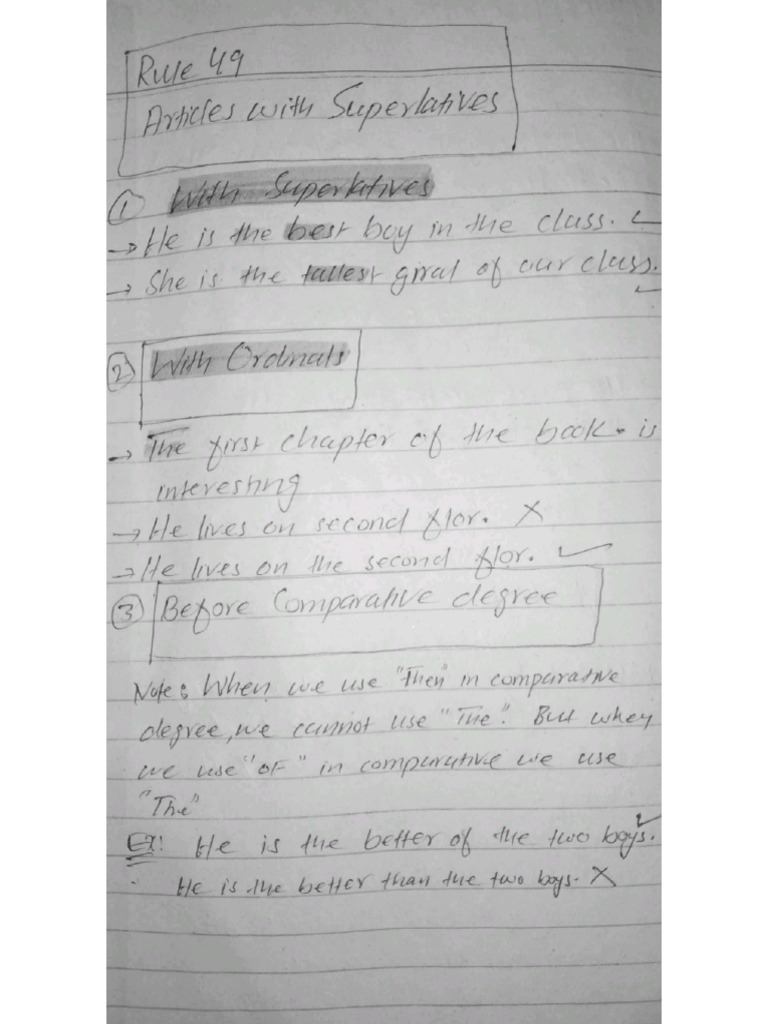 Rule 49
Articles with Superlatives
① With Superlatives
→ He is the best boy in the class. ✓
→ She is the tallest girl of our class. ✓
② With Ordinals
→ The first chapter of the book is
interesting
→ He lives on second flor. X
→ He lives on the second flor. ✓
③ Before Comparative degree
Note: When we use "Then" in comparative
degree, we cannot use "The". But when
we use "OF" in comparative we use
"The"
EX: He is the better of the two boys. ✓
He is the better than the two boys. X